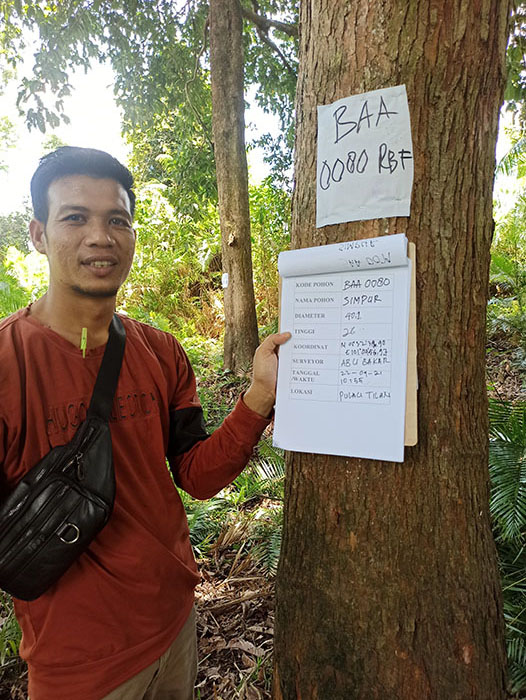 BAA
0080 RBF
KODE POHON BAA 0080
NAMA POHON SIMPUR
DIAMETER 40.1
TINGGI 26
KOORDINAT
SURVEYOR ABU BAKAR
TANGGAL 22-09-21
WAKTU
LOKASI PULAU TILAN